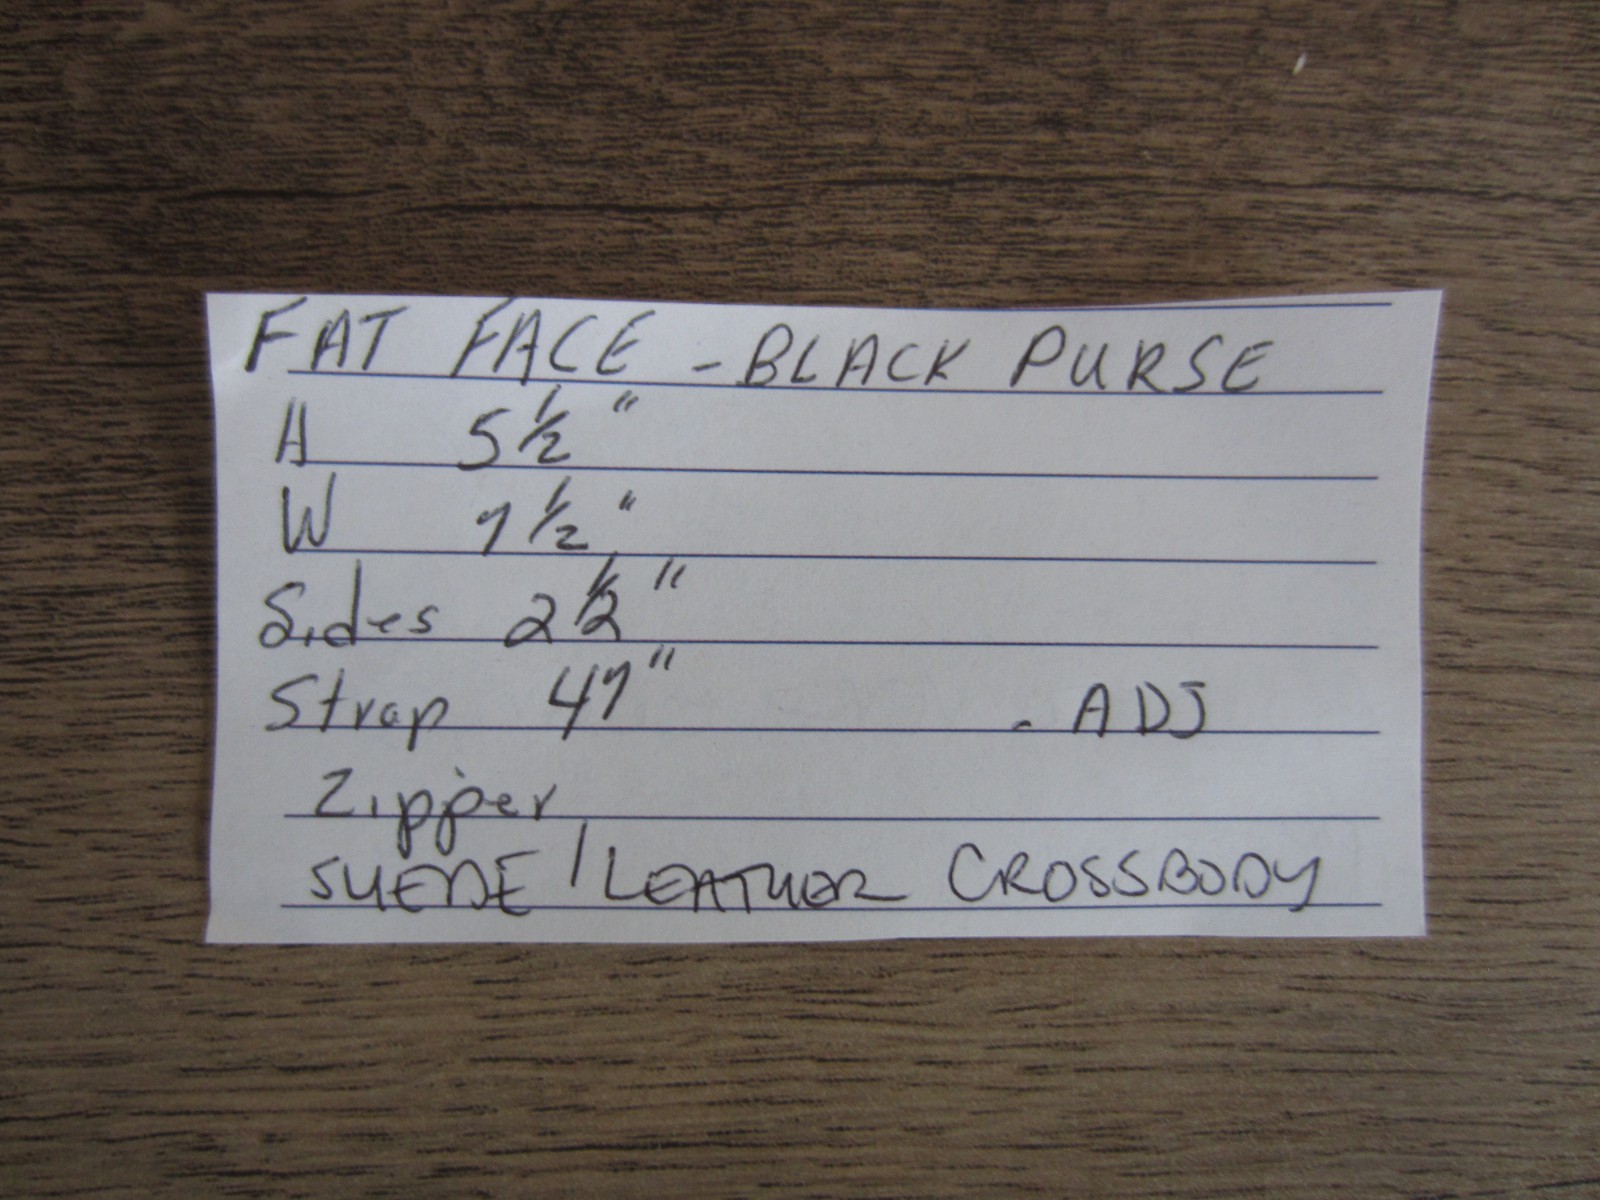 FAT FACE - BLACK PURSE
H 5 1/2"
W 7 1/2"
Sides 2 1/2"
Strap 47" - ADJ
Zipper
SUEDE / LEATHER CROSSBODY